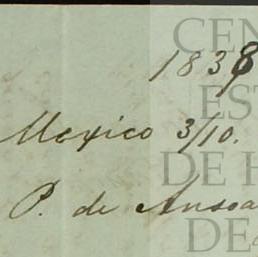 1838
Mexico 3/10.
P. de Ansoa
CEN
EST
DE H
DE